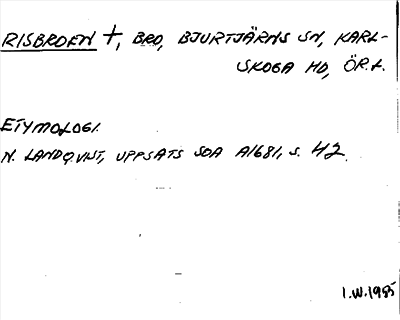 RISBROEN †, BRO, BJURTJÄRNS SN, KARL-
SKOGA HD, ÖR.L.
ETYMOLOGI.
N. LANDQVIST, UPPSATS SOA A1681, s. 42
I.W.1985